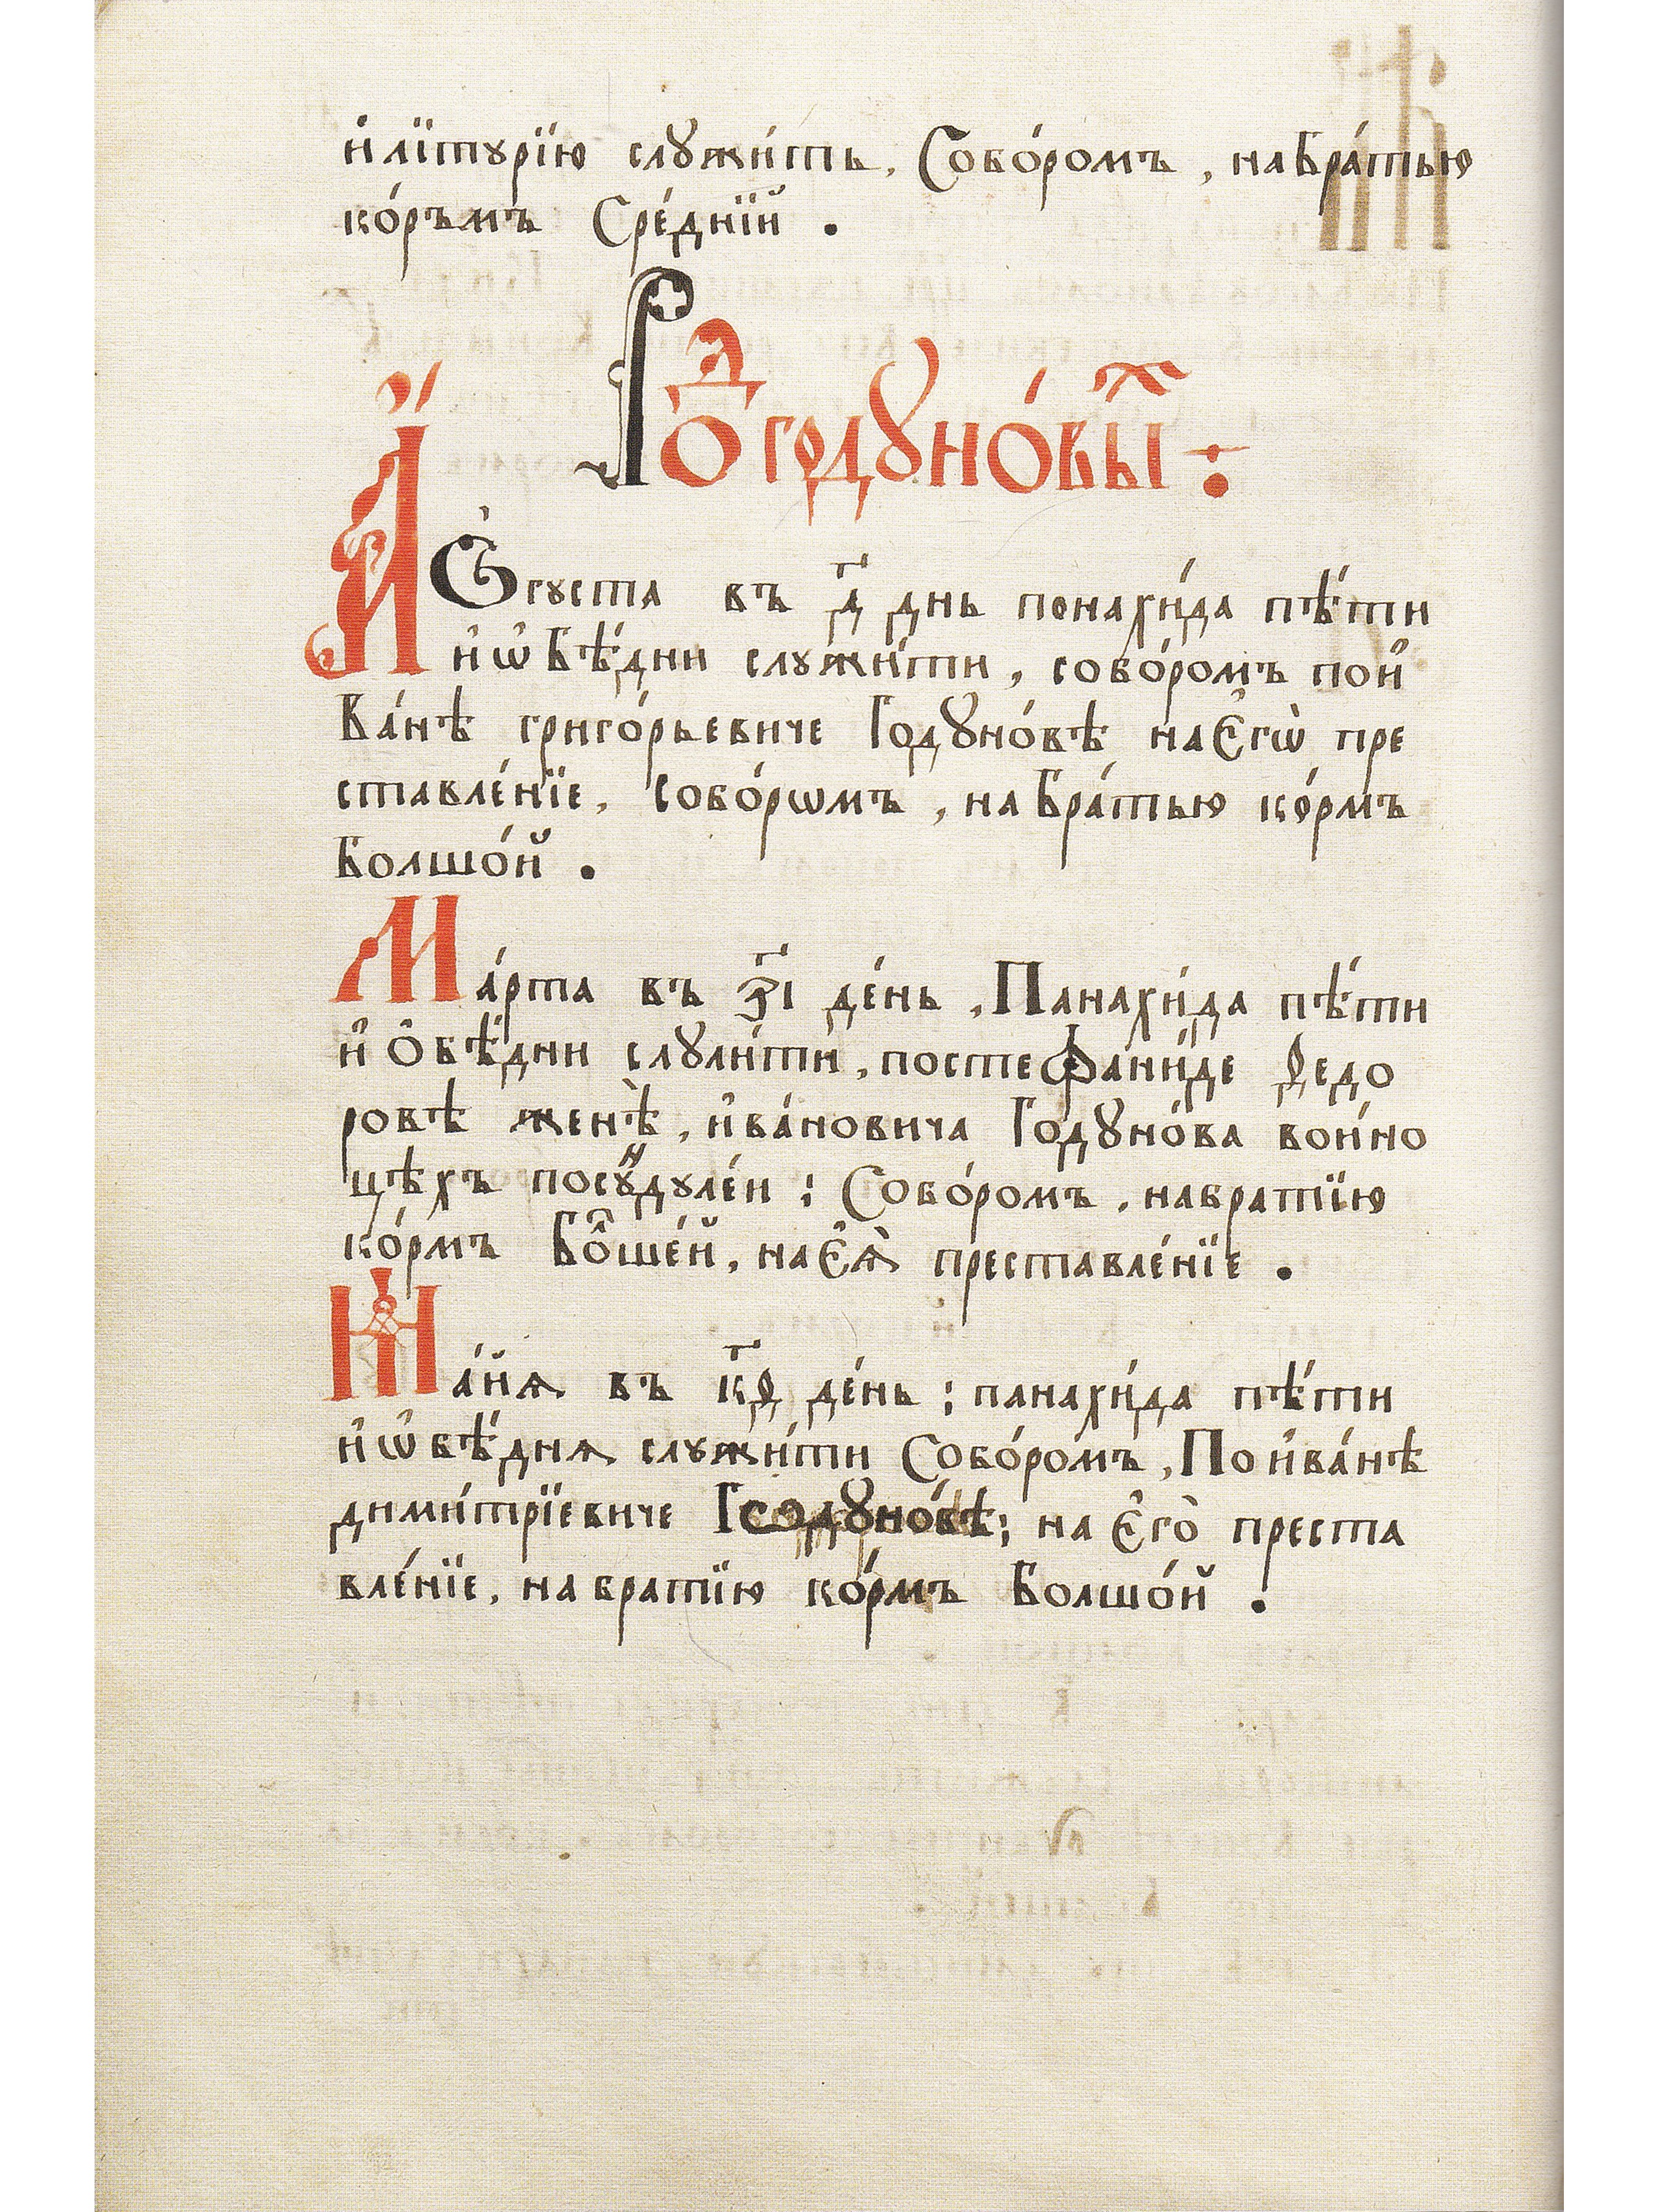 и҆ лїтꙋрїю слꙋжи́ть, Собо́ромъ, на бра́тью
ко́рмъ Сре́днїй.
Ро́д Годꙋно́вы́х:
А҆́Ѵгꙋста въ д҃ днь понахи́да пѣ́ти
и҆ ѡ҆бѣ́дни слꙋжи́ти, собо́ромъ по и҆
ва́нѣ григо́рьевиче Годꙋно́вѣ на є҆гѡ̀ пре
ставле́нїе, собо́рѡмъ, на бра́тью ко́рмъ
болшо́й.
Ма́рта въ з҃і де́нь, Панахи́да пѣ́ти
и҆ о҆бѣ́дни слꙋли́ти, по стефани́де ѳедо
ровѣ женѣ̀, и҆ва́новича Годꙋно́ва во и́но
цѣхъ по сꙋндꙋле́и; Собо́ромъ, на братїю
ко́рмъ Бо́лшей, на є҆ѧ̀ преставле́нїе.
Ма́йѧ въ кѳ҃ де́нь; панахи́да пѣ́ти
и҆ ѡ҆бѣ́днѧ слꙋжи́ти Собо́ромъ, По и҆ва́нѣ
дими́трїевиче Годꙋно́вѣ; на є҆гѡ̀ преста
вле́нїе, на братїю ко́рмъ болшо́й.